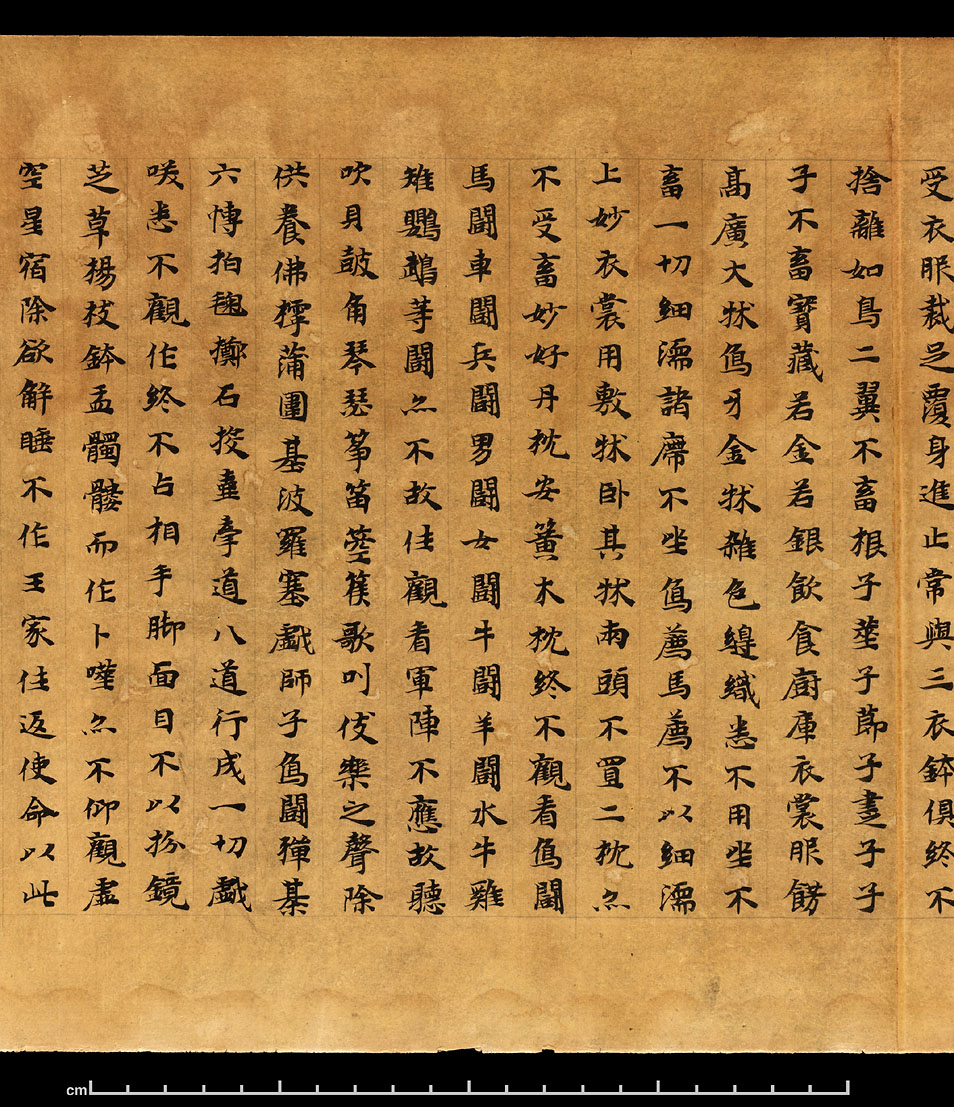 受衣服裁足覆身進止常與三衣鉢俱終不
捨離如鳥二翼不畜根子莖子莭子畫子子
子不畜寳藏若金若銀飲食廚庫衣裳服餝
高廣大牀象牙金牀雜色緶織悉不用坐不
畜一切細濡諸廗不坐象薦馬薦不以細濡
上妙衣裳用敷牀卧其牀兩頭不置二枕亦
不受畜妙好丹枕安簧木枕終不觀看象闘
馬闘車闘兵闘男闘女闘牛闘羊闘水牛雞
雉鸚鵡等闘亦不故往觀看軍陣不應故聽
吹貝皷角琴瑟箏笛箜篌歌叫伎樂之聲除
供養佛摴蒲圍基波羅塞戯師子象闘彈棊
六愽拍毱擲石投壷牽道八道行成一切戯
唉悉不觀作終不占相手脚面目不以抓鏡
芝草楊枝鉢盂髑髏而作卜噬亦不仰觀虛
空星宿除欲解睡不作王家往返使命以此
cm